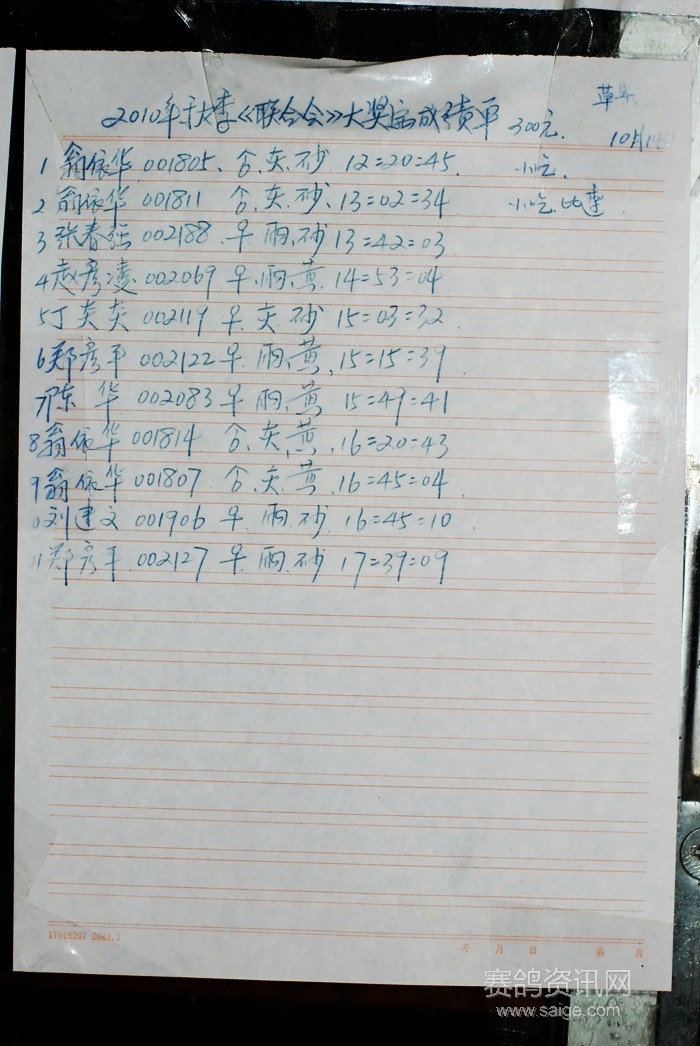 草
2010年秋季《联合会》大奖赛成绩单 300元. 10月
1 翁依华 001805、合、灰、砂 12=20=45. 小吃.
2 翁依华 001811 合、灰、砂、13=02=34 小吃、比速
3 张春强 002188 早 雨、砂 13=42=03
4 赵彦凌 002069 早、雨、黄 14=53=04
5 丁炎炎 002119 早、灰、砂 15=03=32
6 郑彦平 002122 早、雨、黄、15=15=39
7 陈华 002083 早 雨、黄 15=49=41
8 翁依华 001814 合、灰、黄、16=20=43
9 翁依华 001807 合、灰、黄、16=45=04
刘建文 001906 早、雨、砂 16=45=10
11 郑彦平 002127 早、雨、砂 17=39=09
17015207 2003.7 年 月 日 第 页
赛鸽资讯网
www.saige.com